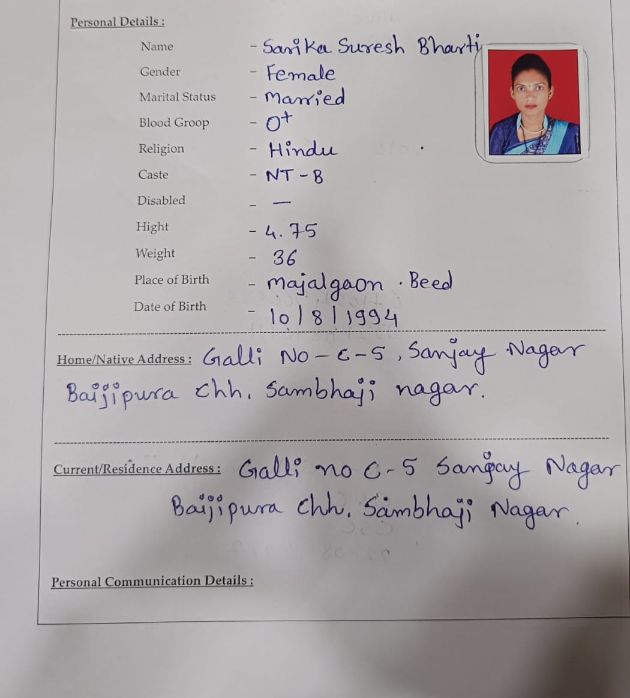 Personal Details :
Name - Sarika Suresh Bharti
Gender - Female
Marital Status - Married
Blood Groop - O+
Religion - Hindu
Caste - NT-B
Disabled - —
Hight - 4.75
Weight - 36
Place of Birth - Majalgaon . Beed
Date of Birth - 10/8/1994
Home/Native Address : Galli No - C-5, Sanjay Nagar
Baijipura Chh. Sambhaji nagar.
Current/Residence Address : Galli no C-5 Sanjay Nagar
Baijipura Chh. Sambhaji Nagar.
Personal Communication Details :